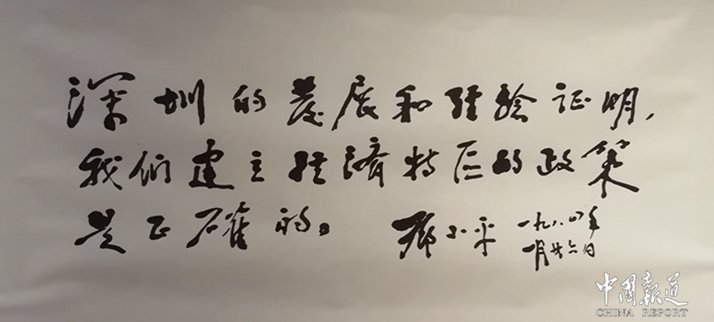 深圳的发展和经验证明，
我们建立经济特区的政策
是正確的。 邓小平 一九八四年
一月廿六日
中国報道
CHINA REPORT